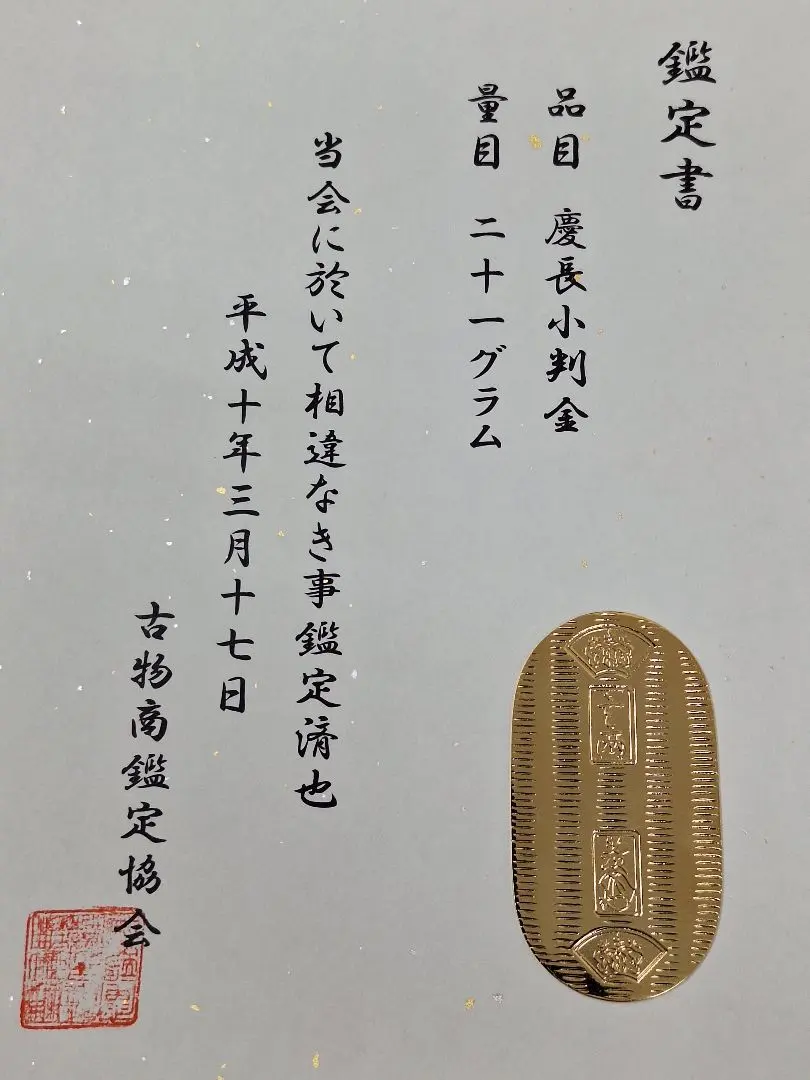 鑑定書
品目 慶長小判金
量目 二十一グラム
当会に於いて相違なき事鑑定済也
平成十年三月十七日
古物商鑑定協会